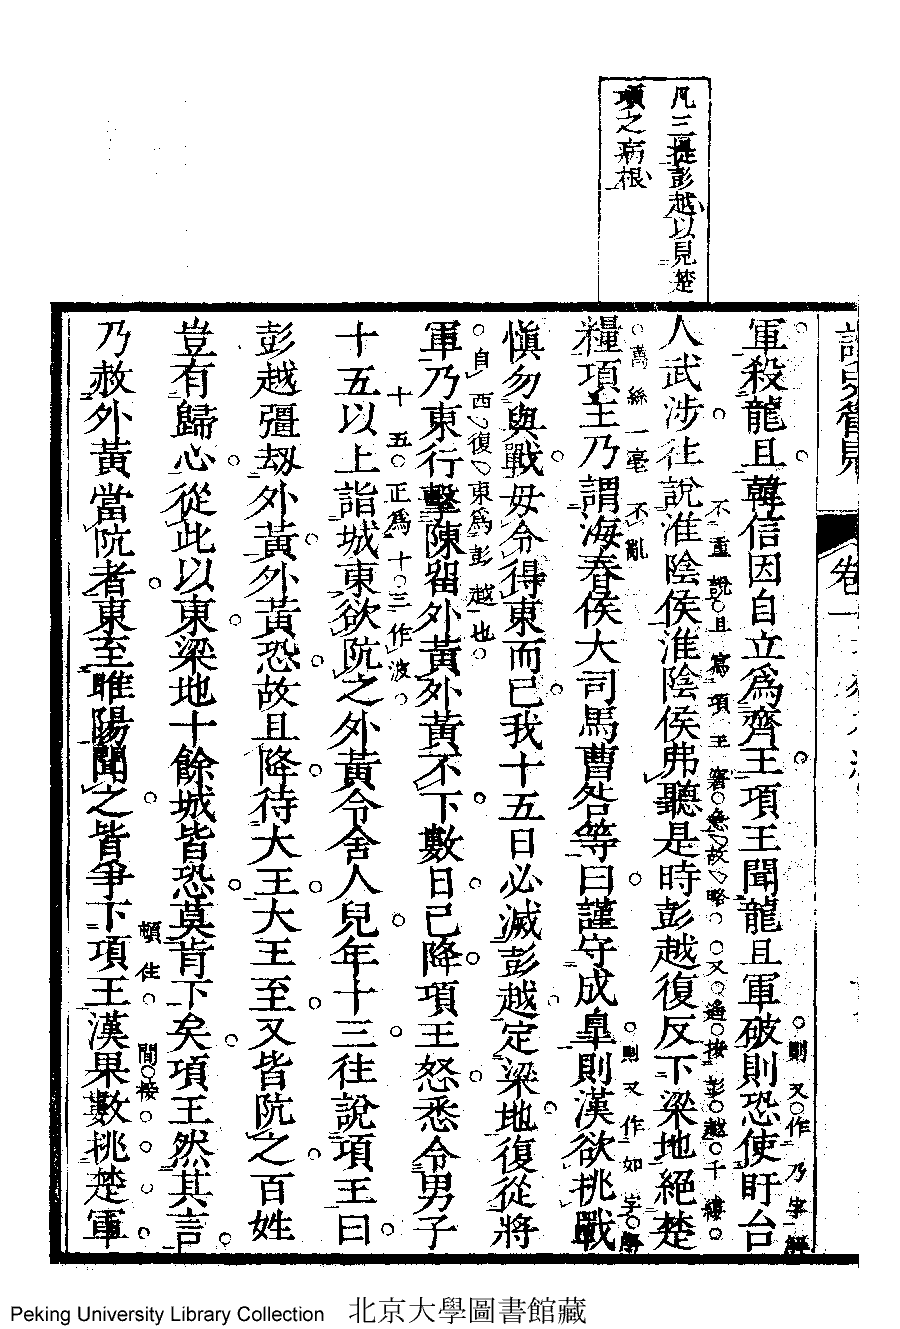 凡三提彭越以見楚
項之病根
卷一
軍殺龍且韓信因自立爲齊王項王聞龍且軍破則恐使盱台
則又作乃字解
人武涉往說淮陰侯淮陰侯弗聽是時彭越復反下梁地絕楚
不重說且寫項王窘急故略又遙接彭越千縷
萬絲一毫不亂
糧項王乃謂海春侯大司馬曹咎等曰謹守成臯則漢欲挑戰
則又作如字解
愼勿與戰毋令得東而已我十五日必滅彭越定梁地復從將
自西復東爲彭越也
軍乃東行擊陳留外黃外黃不下數日已降項王怒悉令男子
十五正爲十三作波
十五以上詣城東欲阬之外黃令舍人兒年十三往說項王曰
彭越彊刼外黃外黃恐故且降待大王大王至又皆阬之百姓
豈有歸心從此以東梁地十餘城皆恐莫肯下矣項王然其言
頓住 間接
乃赦外黃當阬者東至睢陽聞之皆爭下項王漢果數挑楚軍
Peking University Library Collection 北京大學圖書館藏